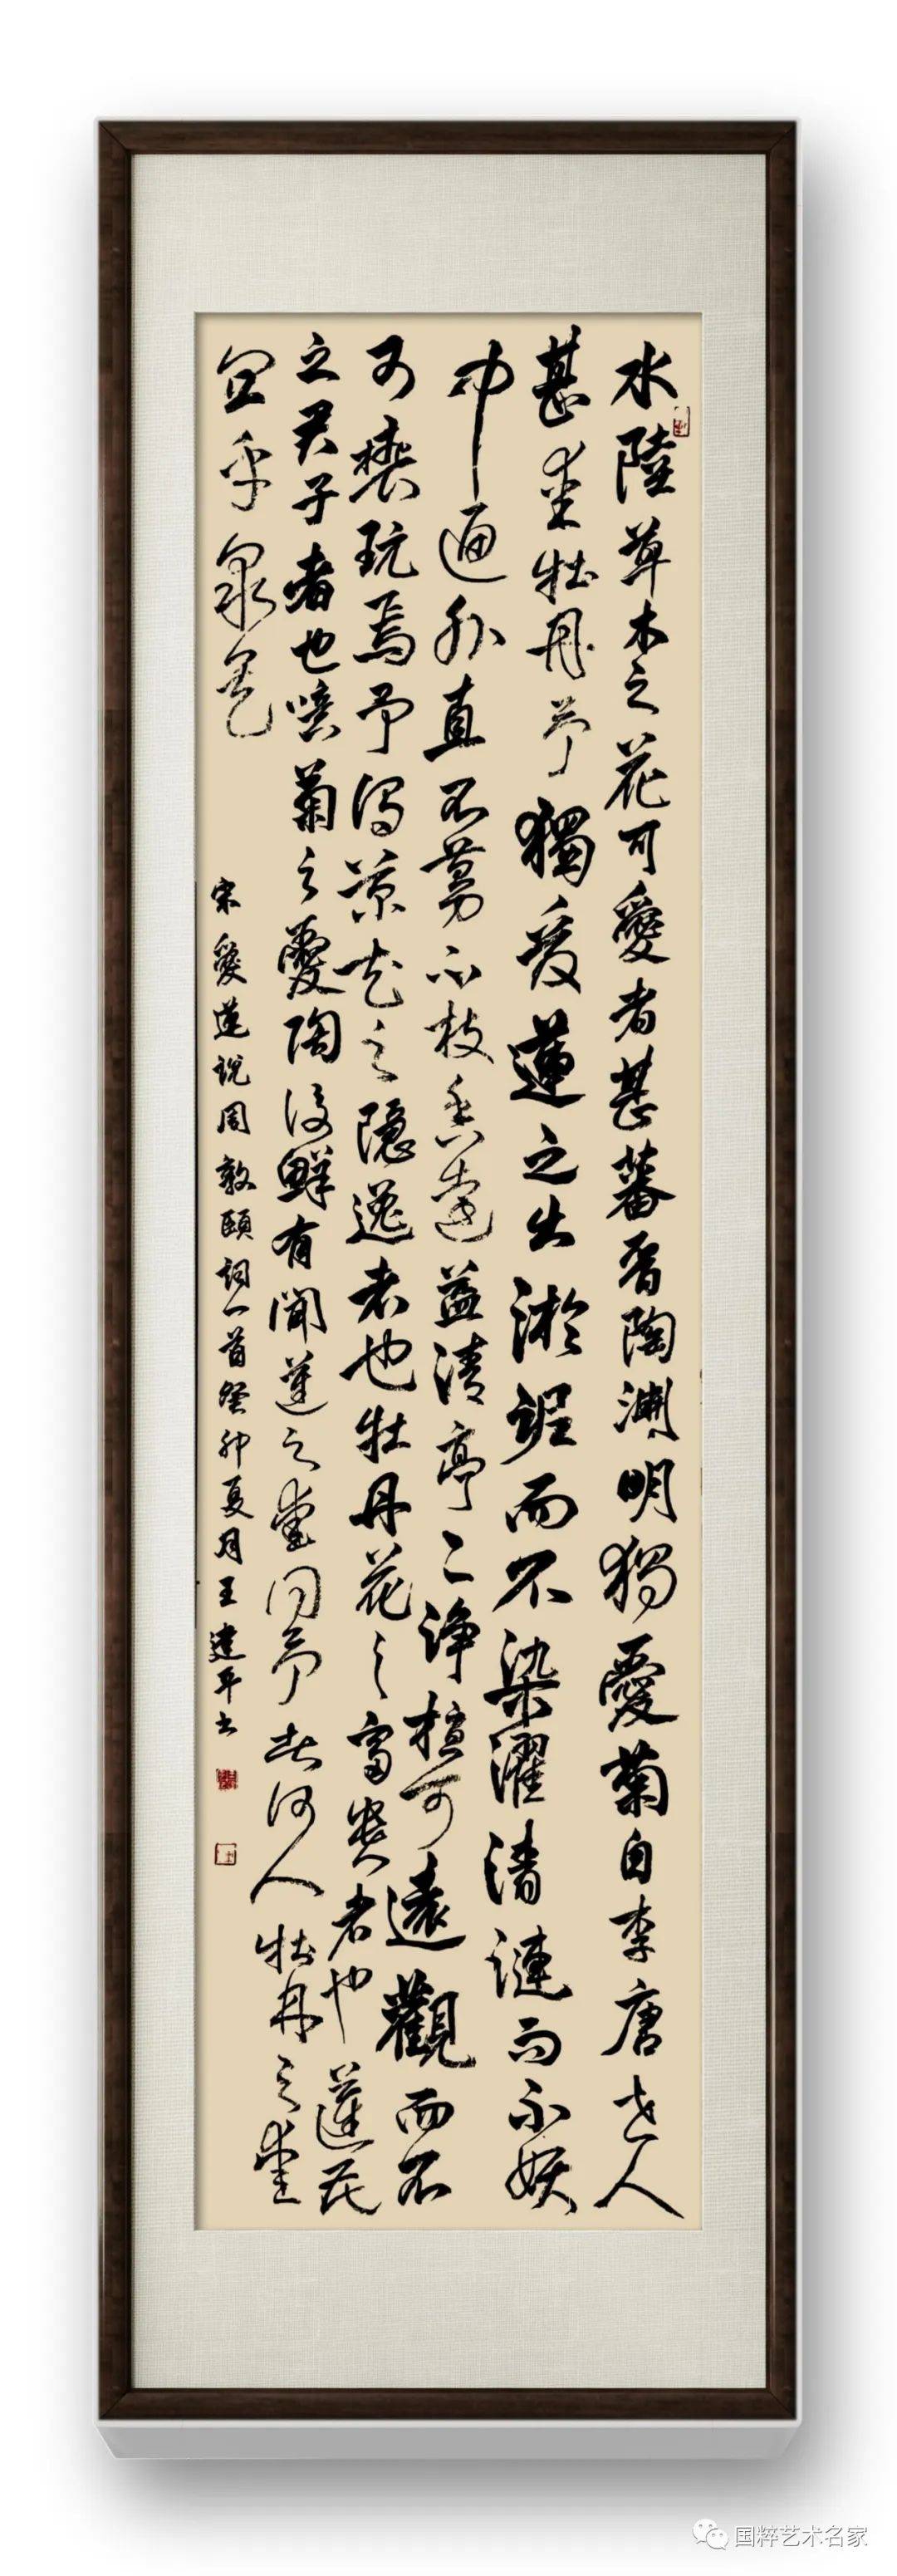 水陸草木之花可愛者甚蕃晉陶淵明獨愛菊自李唐世人
甚愛牡丹予獨愛蓮之出淤泥而不染濯清漣而不妖
中通外直不蔓不枝香遠益清亭亭淨植可遠觀而不
可褻玩焉予謂菊花之隱逸者也牡丹花之富貴者也蓮花
之君子者也噫菊之愛陶後鮮有聞蓮之愛同予者何人牡丹之愛
宜乎衆矣
宋愛蓮說周敦頤詞一首癸卯夏月王建平書
国粹艺术名家